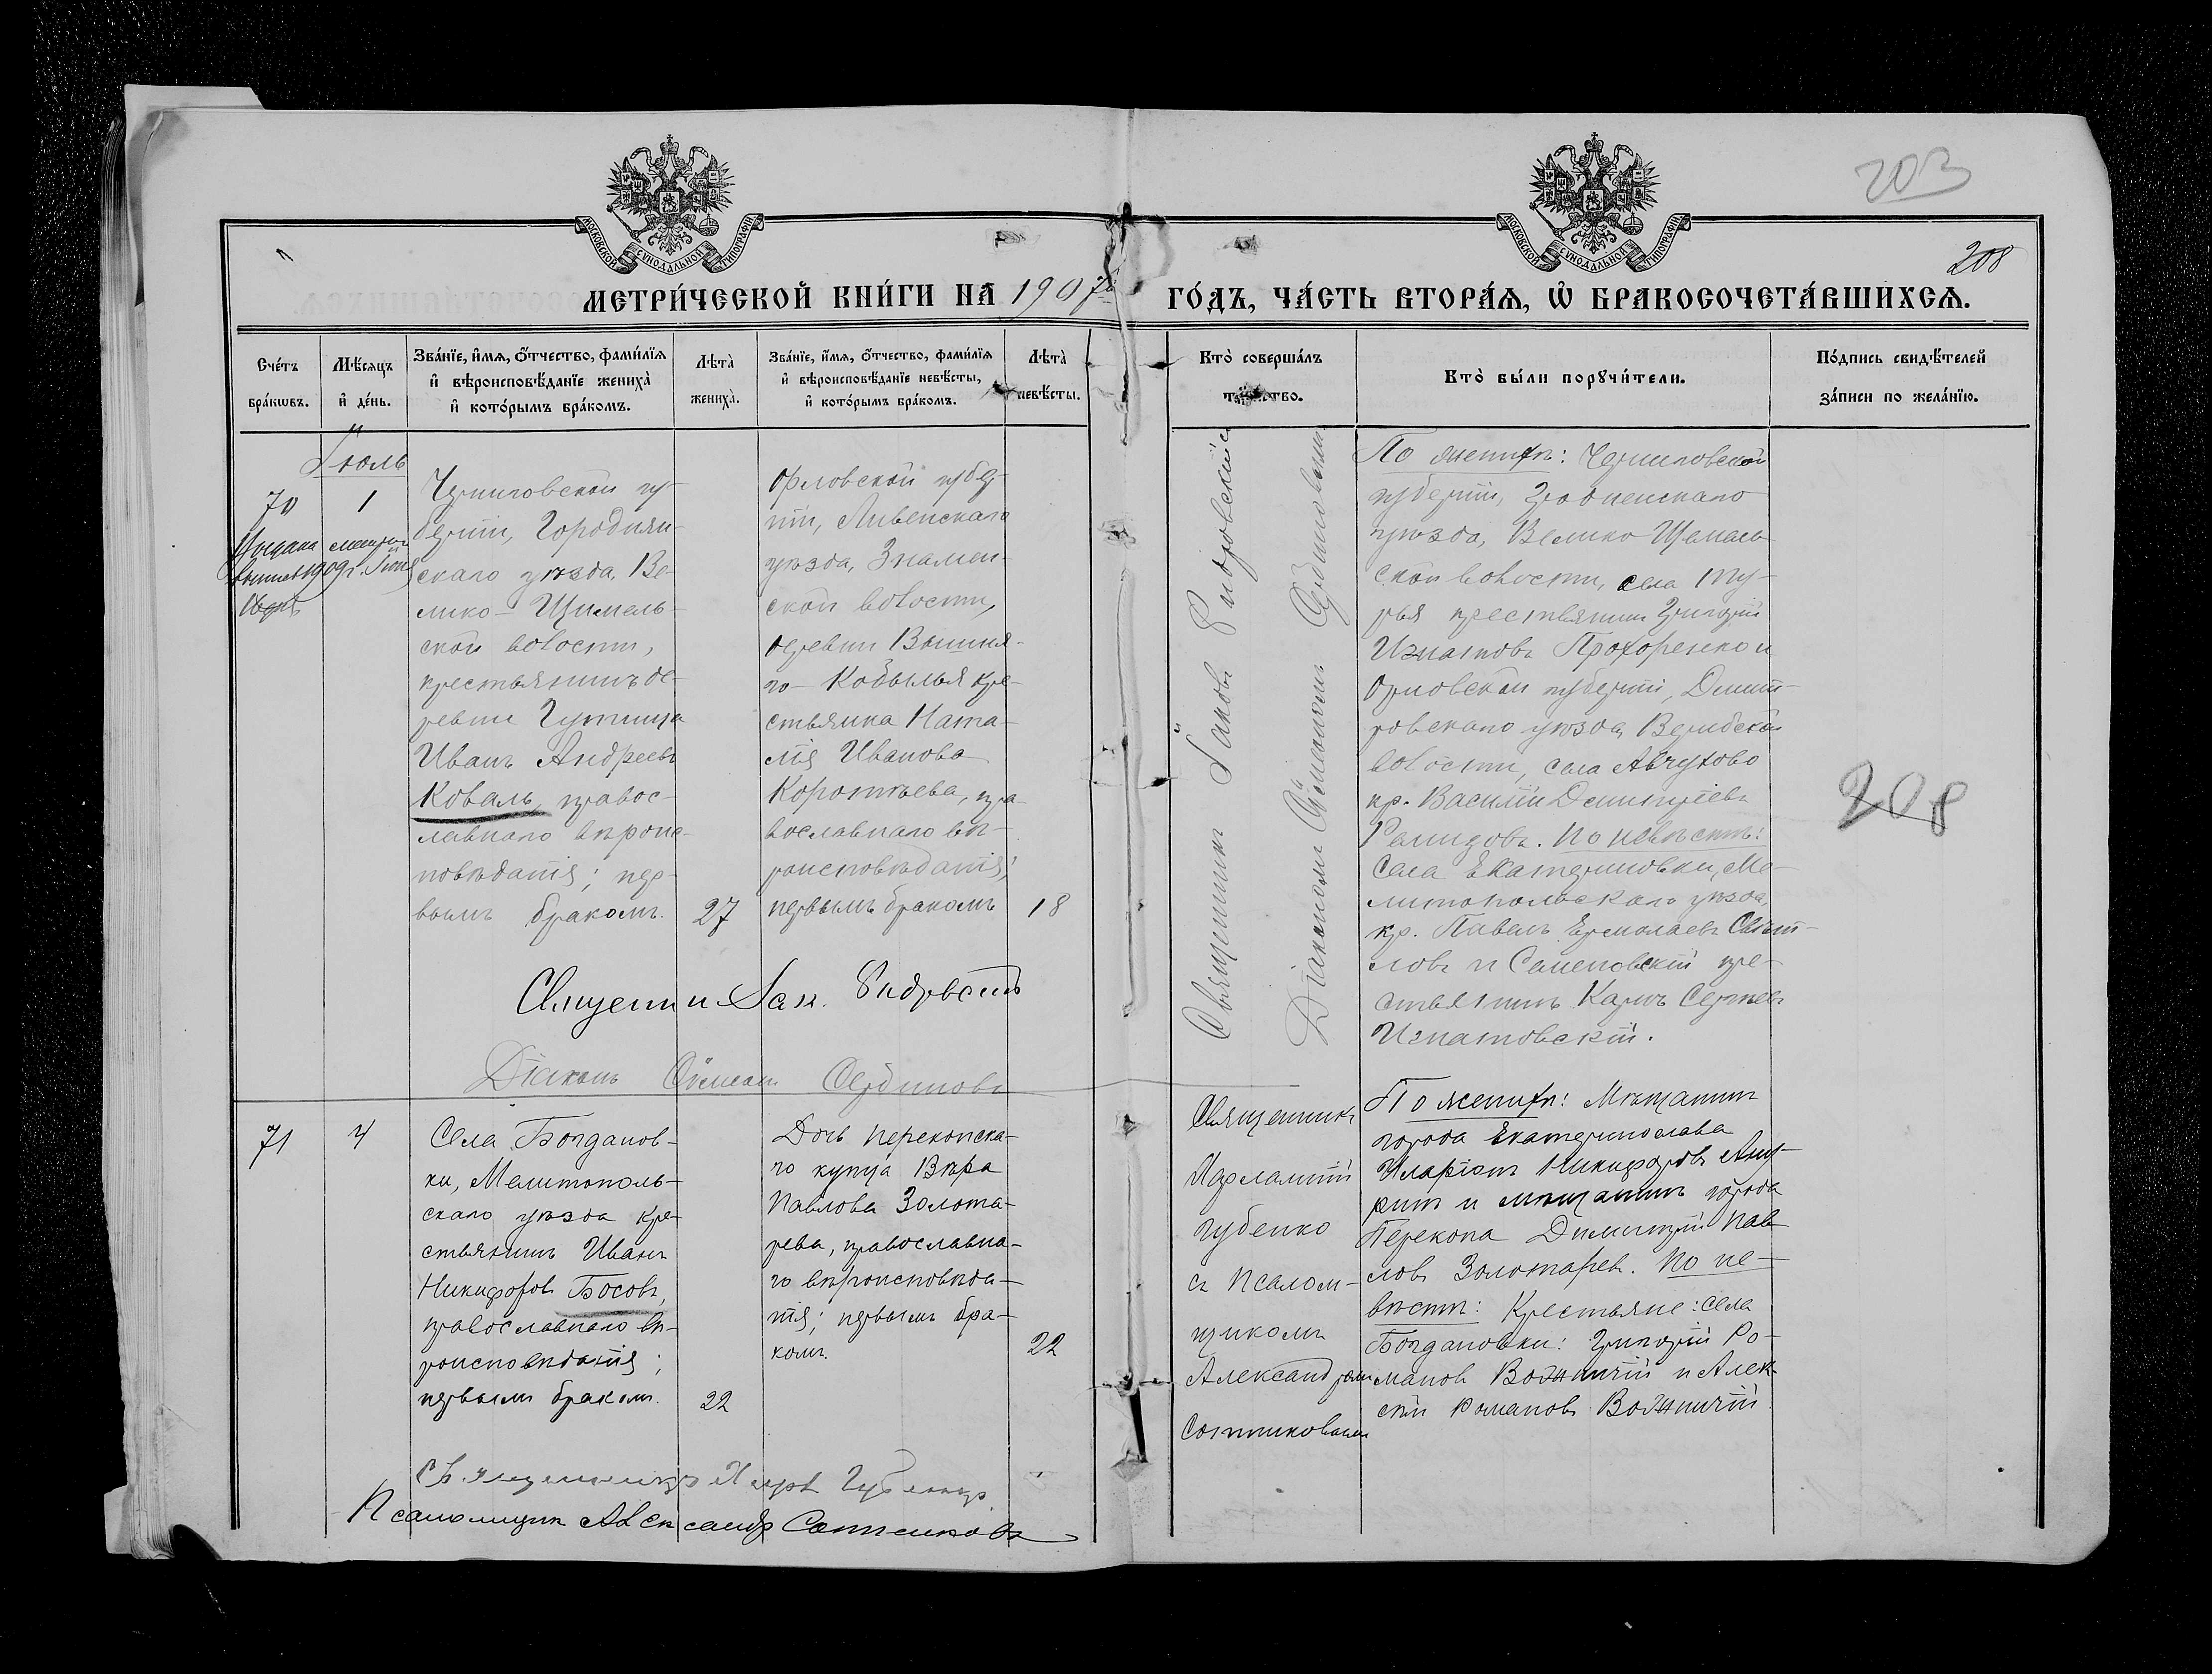 203
208
МОСКОВСКОЙ СѴНОДАЛЬНОЙ ТИПОГРАФІИ
МОСКОВСКОЙ СѴНОДАЛЬНОЙ ТИПОГРАФІИ
МЕТРИ́ЧЕСКОЙ КНИ́ГИ НА̀ 1907 й
ГО́ДЪ, ЧА́СТЬ ВТОРА́Ѧ, Ѡ҆ БРАКОСОЧЕТА́ВШИХСѦ.
Сче́тъ бра́кѡвъ.
Мѣ́сѧцъ и҆ де́нь.
Зва́нїе, и҆́мѧ, ѻ҆́тчество, фами́лїѧ
и҆ вѣроисповѣ́данїе жениха̀
и҆ кото́рымъ бра́комъ.
Лѣта̀ жениха̀.
Зва́нїе, и҆́мѧ, ѻ҆́тчество, фами́лїѧ
и҆ вѣроисповѣ́данїе невѣ́сты,
и҆ кото́рымъ бра́комъ.
Лѣта̀ невѣ́сты.
Кто̀ соверша́лъ
та́инство.
Кто̀ бы́ли порꙋчи́тели.
По́дпись свидѣ́телей
за́писи по жела́нїю.
Іюль
70
1
Черниговской гу-
берніи, Городнян-
скаго уѣзда, Ве-
лико-Щимель-
ской волости,
крестьянинъ де-
ревни Гутища
Иванъ Андреевъ
Коваль, правос-
лавнаго вѣроис-
повѣданія; пер-
вымъ бракомъ.
27
Орловской губер-
ніи, Ливенскаго
уѣзда, Знамен-
ской волости,
деревни Вышня-
го-Кобылья кре-
стьянка Ната-
лія Иванова
Коротѣева, пра-
вославнаго вѣ-
роисповѣданія;
первымъ бракомъ
18
Священникъ Іаковъ
Діакономъ Сѵмеономъ
По женихѣ: Черниговской
губерніи,
уѣзда, Велико Щемель-
ской волости, села Ту-
рья крестьянинъ Григорій
Игнатовъ Прохоренко и
Орловской губерніи, Дмит-
ровскаго уѣзда,
волости, села Авчухово
кр. Василій Димитріевъ
По невѣстѣ:
Села Екатериновки, Ме-
литопольскаго уѣзда,
кр. Павелъ Ермолаевъ Свѣт-
ловъ и Семеновскій кре-
стьянинъ Карпъ Сергѣевъ
Игнатовскій.
208
Священникъ Іак.
Діаконъ Сѵмеонъ
71
4
Села Богданов-
ки, Мелитополь-
скаго уѣзда кре-
стьянинъ Иванъ
Никифоровъ Босовъ,
православнаго вѣ-
роисповѣданія;
первымъ бракомъ.
22
Дочь перекопска-
го купца Вѣра
Павлова Золота-
рева, православна-
го вѣроисповѣда-
нія; первымъ бра-
комъ.
22
Священникъ
Харлампій
Губенко
съ Псалом-
щикомъ
Александромъ
Сотниковымъ
По женихѣ: Мѣщанинъ
города Екатеринослава
Иларіонъ Никифоровъ
и мѣщанинъ города
Перекопа Димитрій Пав-
ловъ Золотаревъ. По не-
вѣстѣ: Крестьяне: села
Богдановки: Григорій Ро-
мановъ и Алек-
сѣй Романовъ
Священникъ Харл. Губенко
Псаломщикъ Александръ Сотниковъ